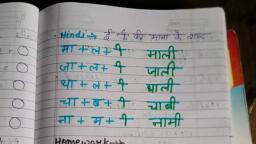 Hindi → ई ी की मात्रा के शब्द
मा + ल + ी माली
जा + ल + ी जाली
था + ल + ी थाली
चा + ब + ी चाबी
ना + म + ी नामी
Homework